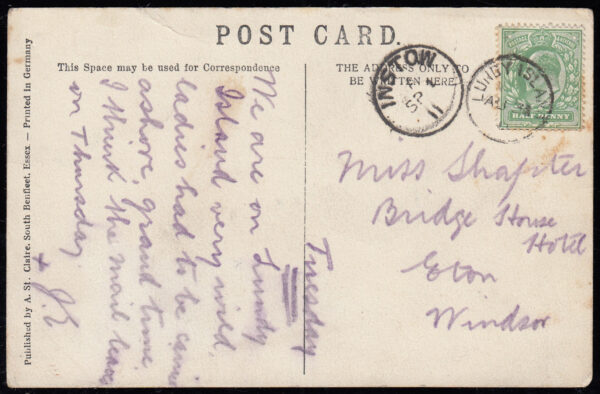 POST CARD.
This Space may be used for Correspondence
THE ADDRESS ONLY TO
BE WRITTEN HERE.
Published by A. St. Claire, South Benfleet, Essex — Printed in Germany
Tuesday
We are on Lundy
Island very wild
ladies had to be carried
ashore, grand time
I think the mail leaves
on Thursday.
J.E
Miss Shapter
Bridge House
Hotel
Eton
Windsor
INSTOW
SP
11
LUNDY ISLAND
AU
HALF PENNY